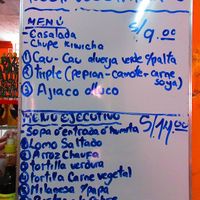 MENÚ S/9.00
- Ensalada
- Chupe Kiwicha
① Cau-Cau alverja verde s/palta
② triple (pepian-camote-carne soya)
③ Ajiaco olluco
MENU EJECUTIVO S/14.00
Sopa o entrada o humita
Lomo Saltado
② Arroz Chaufa
③ tortilla verdura
④ tortilla Carne vegetal
⑤ Milanesa s/papa